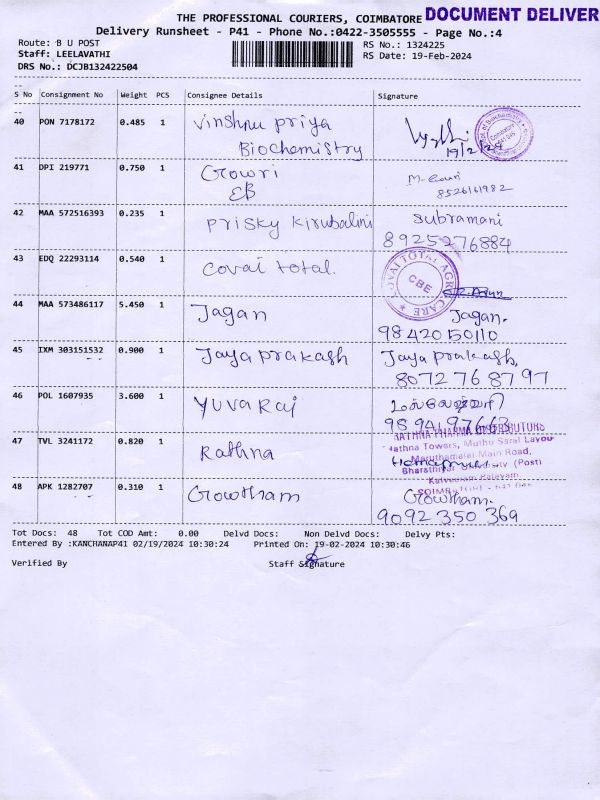 THE PROFESSIONAL COURIERS, COIMBATORE DOCUMENT DELIVER
Delivery Runsheet - P41 - Phone No.:0422-3505555 - Page No.:4
Route: B U POST
RS No.: 1324225
Staff: LEELAVATHI
RS Date: 19-Feb-2024
DRS No.: DCJB132422504
S No Consignment No Weight PCS Consignee Details Signature
40 PON 7178172 0.485 1 Vinshnu priya
Biochemistry 19/2/24
41 DPI 219771 0.750 1 Gowri M. Gouri
EB 8526161982
42 MAA 572516393 0.235 1 Prisky Kirubalini Subramani
8925276884
43 EDQ 22293114 0.540 1 Covai total. COVAI TOTAL AGRO CARE CBE
44 MAA 573486117 5.450 1 Jagan Jagan.
9842050110
45 IXM 303151532 0.900 1 Jaya prakash Jaya prakash,
8072768797
46 POL 1607935 3.600 1 Yuva Raj
9894197663
47 TVL 3241172 0.820 1 Rathna RATHNA PHARMA DISTRIBUTORS
Rathna Towers, Muthu Saral Layou
Maruthamalai Main Road,
Bharathiyar University (Post)
48 APK 1282707 0.310 1 Gowtham Gowtham.
9092 350 369
Tot Docs: 48 Tot COD Amt: 0.00 Delvd Docs: Non Delvd Docs: Delvy Pts:
Entered By :KANCHANAP41 02/19/2024 10:30:24 Printed On: 19-02-2024 10:30:46
Verified By Staff Signature